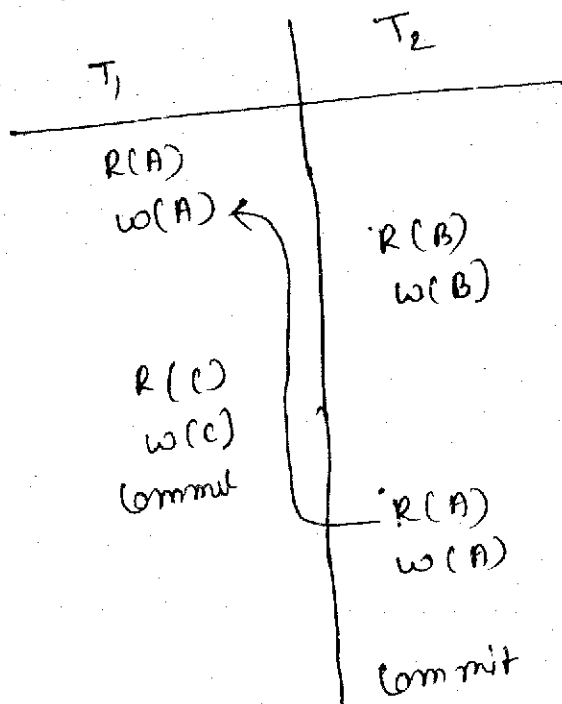 T1 T2
R(A)
W(A)
R(B)
W(B)
R(C)
W(C)
Commit
R(A)
W(A)
Commit